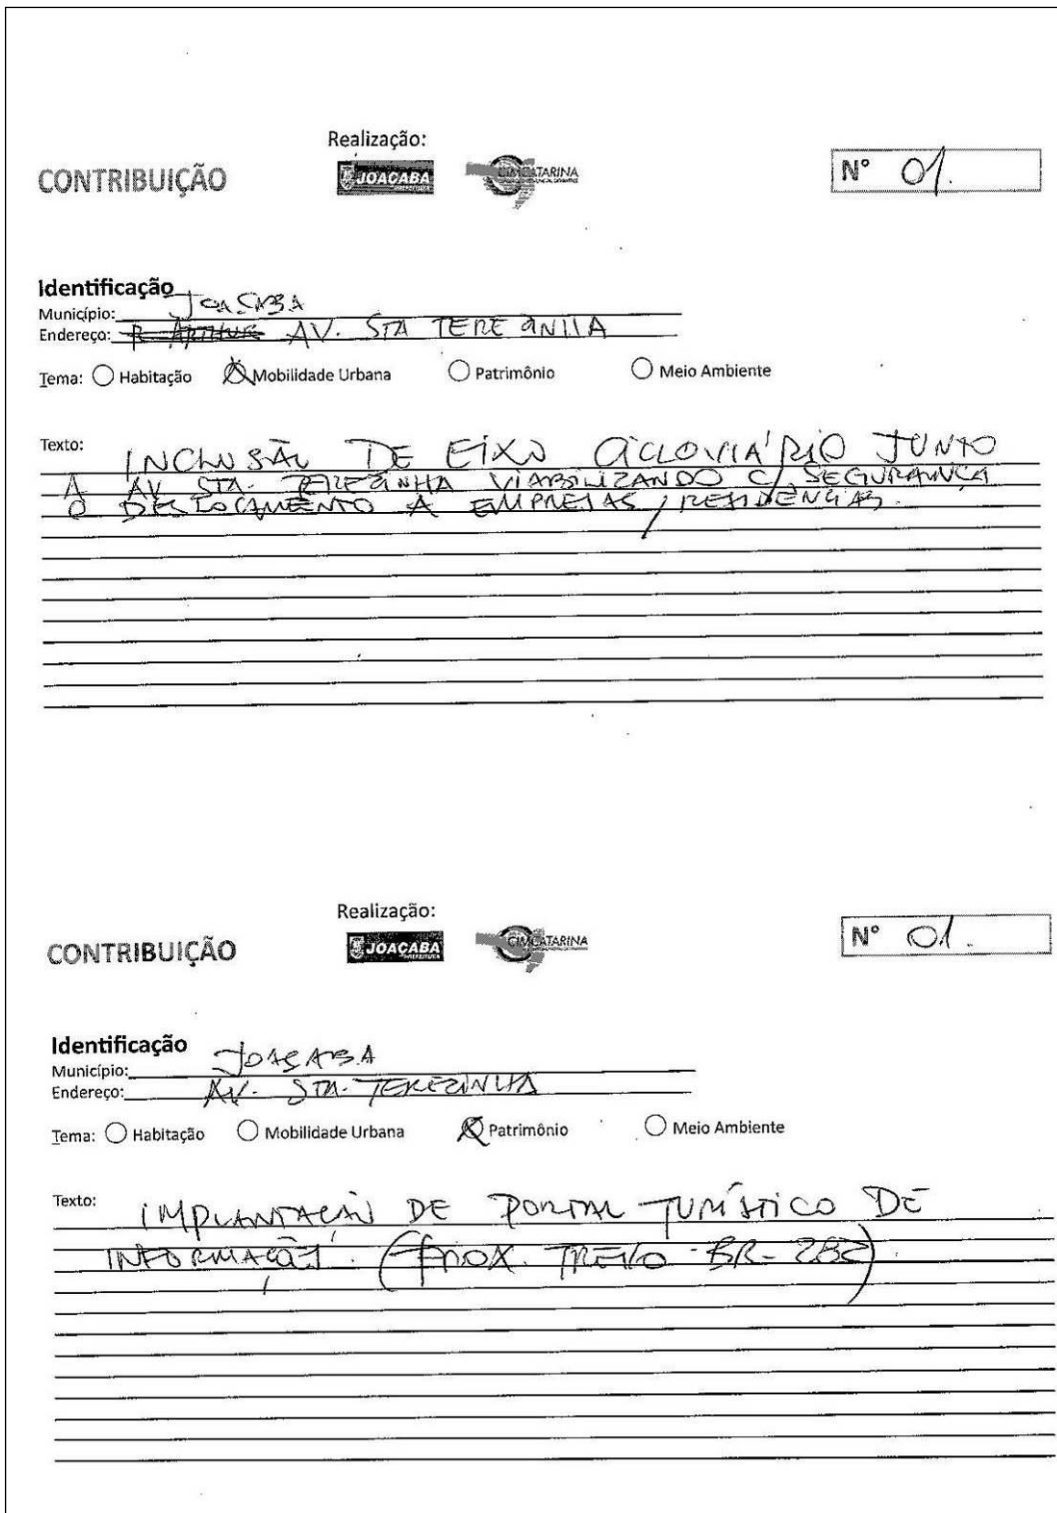 Realização:
CONTRIBUIÇÃO
JOAÇABA
PREFEITURA
CIMCATARINA
N° 01.
Identificação
Município: JOAÇABA
Endereço: R ARTHUR AV. STA TEREZINHA
Tema: Habitação Mobilidade Urbana Patrimônio Meio Ambiente
Texto: INCLUSÃO DE EIXO CICLOVIÁRIO JUNTO
A AV STA. TEREZINHA VIABILIZANDO C/ SEGURANÇA
O DESLOCAMENTO A EMPRESAS / RESIDÊNCIAS.
Realização:
CONTRIBUIÇÃO
JOAÇABA
PREFEITURA
CIMCATARINA
N° 01.
Identificação
Município: JOAÇABA
Endereço: AV. STA. TEREZINHA
Tema: Habitação Mobilidade Urbana Patrimônio Meio Ambiente
Texto: IMPLANTAÇÃO DE PORTAL TURÍSTICO DE
INFORMAÇÕES. (PROX. TREVO BR-282).